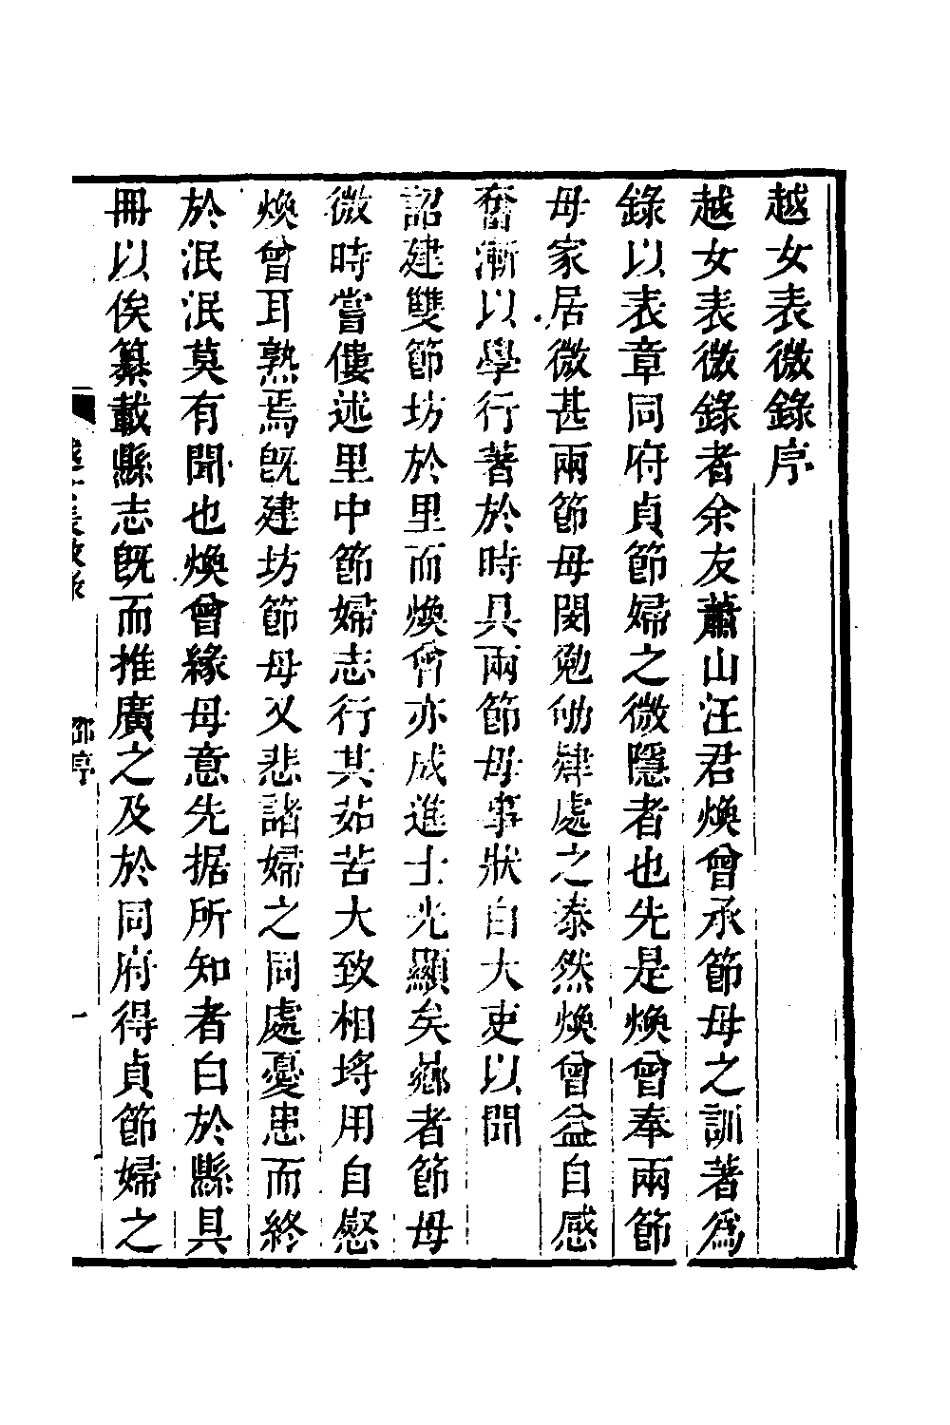 越女表微錄序
越女表微錄者余友蕭山汪君煥曾承節母之訓著爲
錄以表章同府貞節婦之微隱者也先是煥曾奉兩節
母家居微甚兩節母閔勉劬肄處之泰然煥曾益自感
奮漸以學行著於時具兩節母事狀白大吏以聞
詔建雙節坊於里而煥曾亦成進士光顯矣曏者節母
微時嘗僂述里中節婦志行其茹苦大致相埒用自慰
煥曾耳熟焉旣建坊節母又悲諸婦之同處憂患而終
於泯泯莫有聞也煥曾緣母意先据所知者白於縣具
冊以俟纂載縣志旣而推廣之及於同府得貞節婦之
越女表微錄
序
一